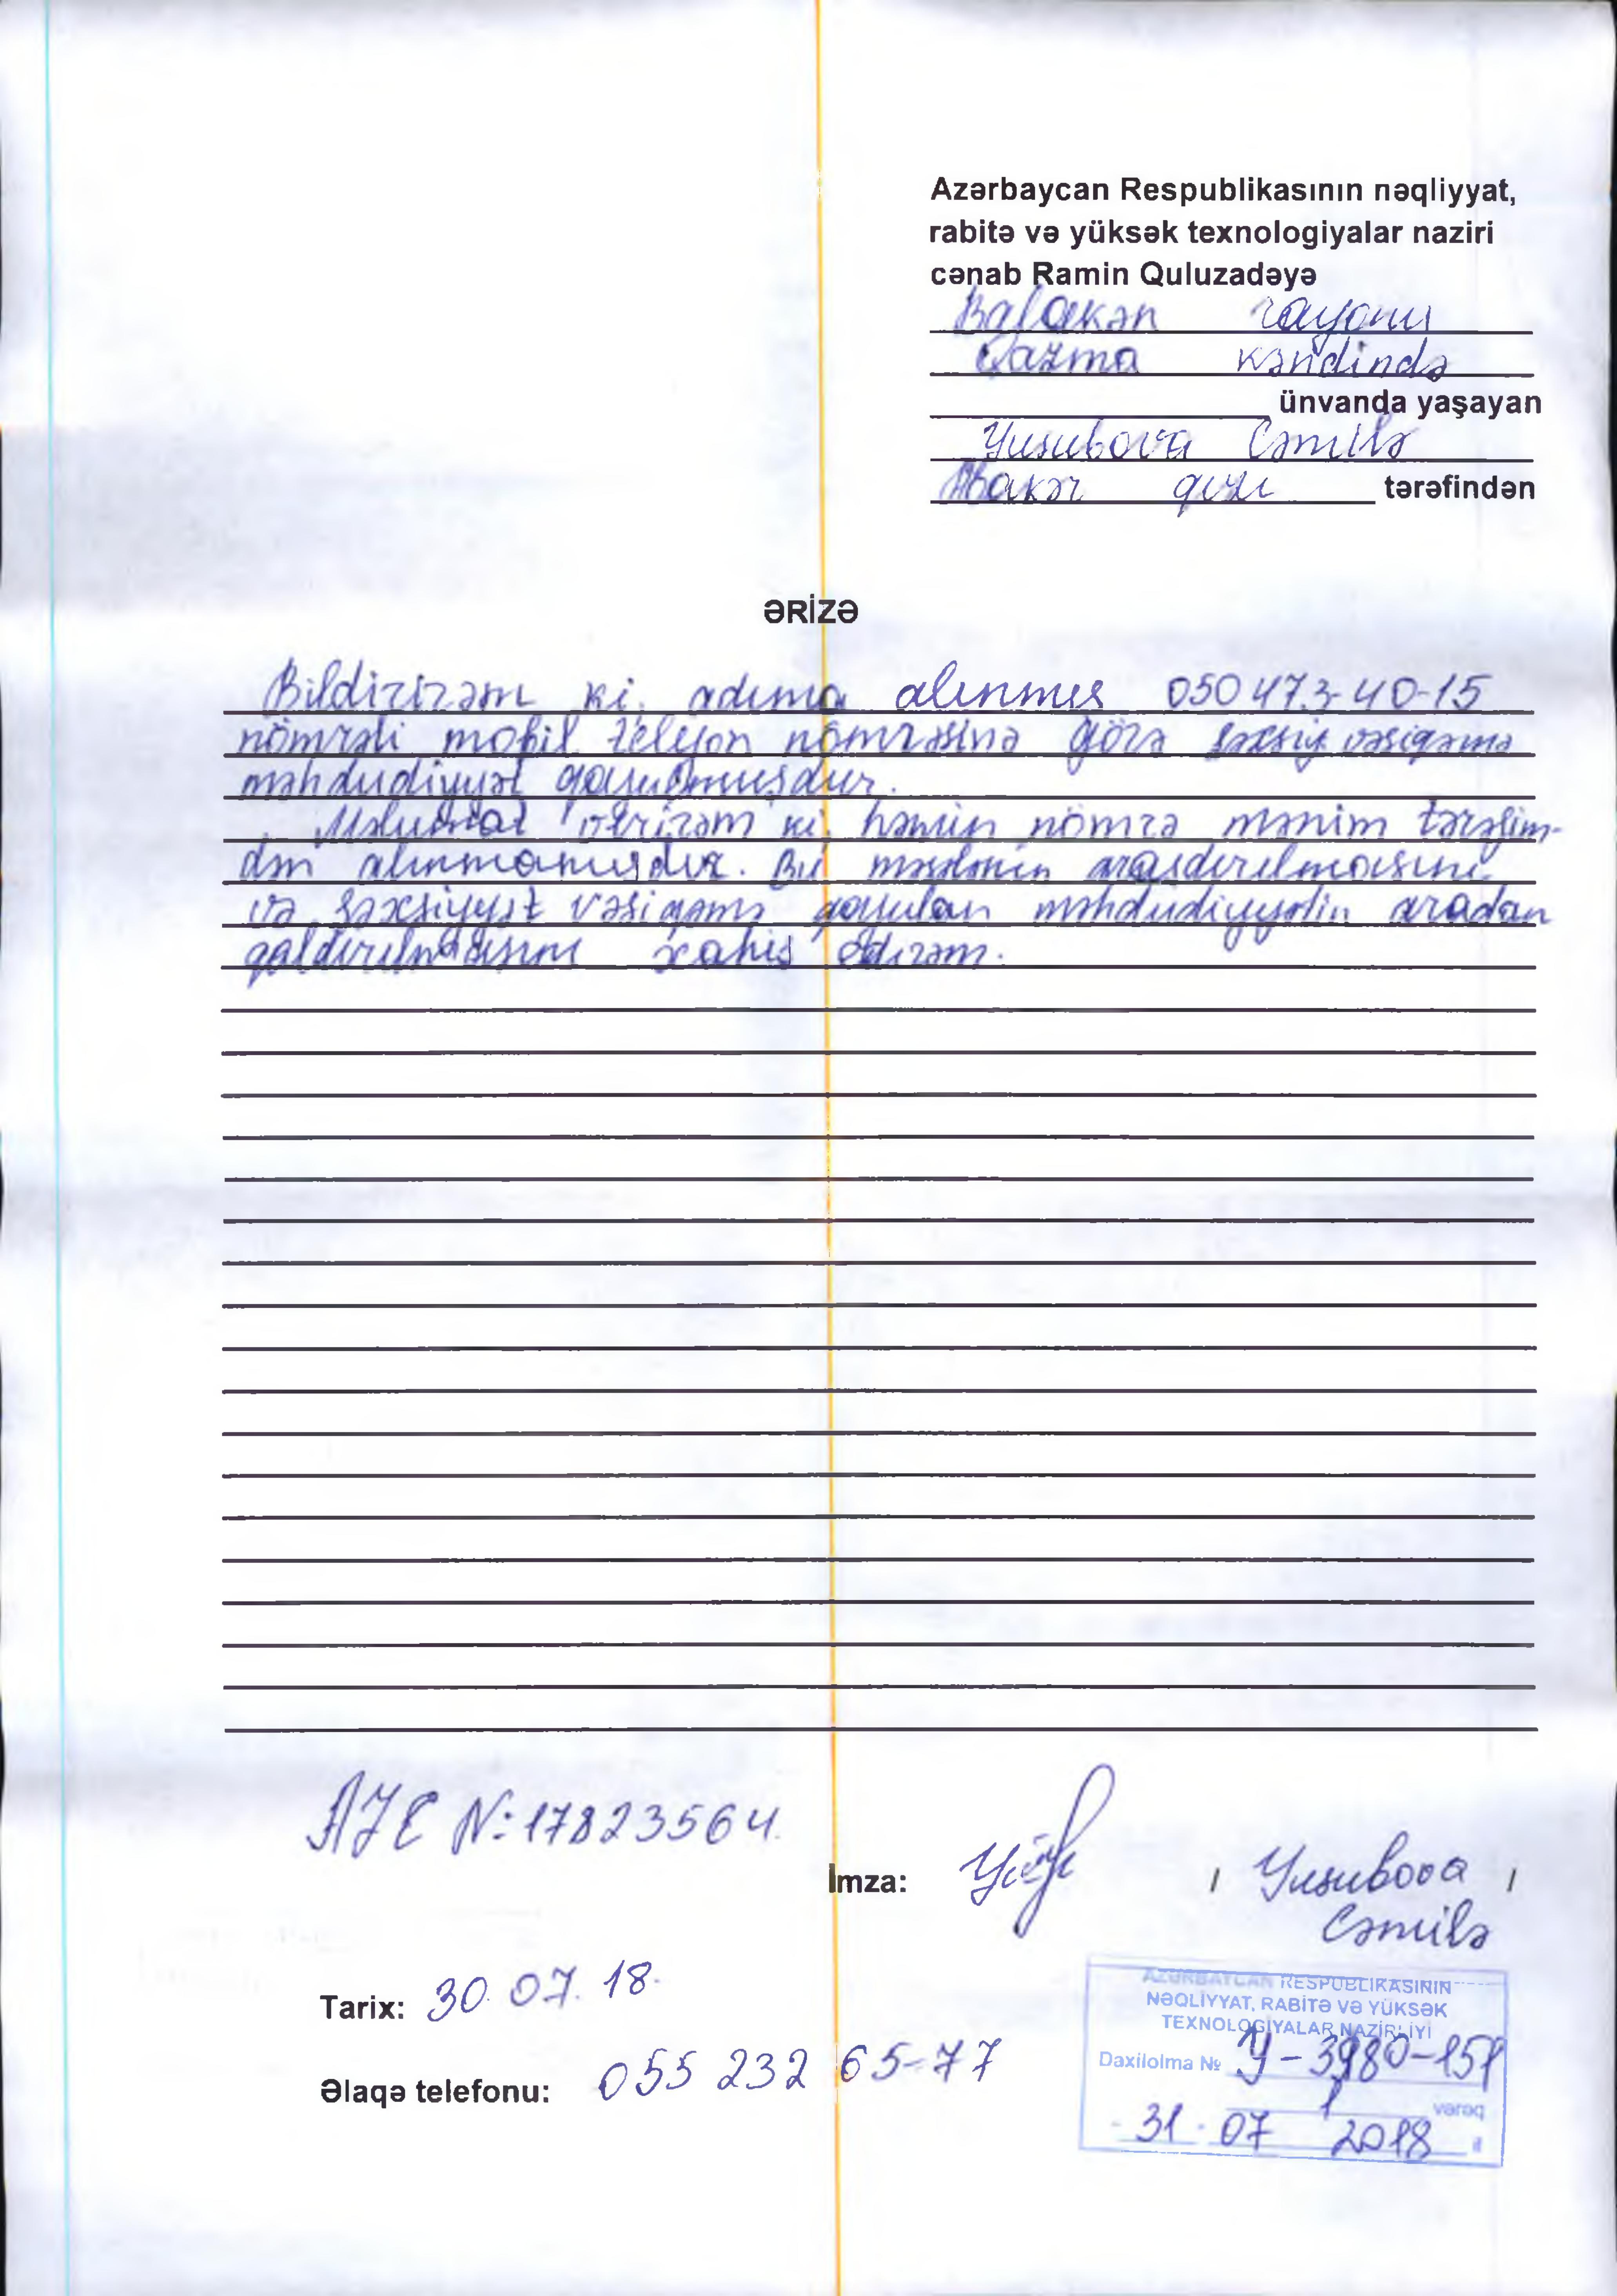 Azərbaycan Respublikasının nəqliyyat,
rabitə və yüksək texnologiyalar naziri
cənab Ramin Quluzadəyə
Balakən rayonu
Qazma kəndində
ünvanda yaşayan
Yusubova Cəmilə
qızı tərəfindən
ƏRİZƏ
Bildirirəm ki, adıma alınmış 050 473-40-15
nömrəli mobil telefon nömrəsinə görə şəxsiy. vəsiqəmə
məhdudiyyət qoyulmuşdur.
Məlumat verirəm ki, həmin nömrə mənim tərəfim-
dən alınmamışdır. Bu məsələnin araşdırılmasını
və şəxsiyyət vəsiqəmə qoyulan məhdudiyyətin aradan
qaldırılmasını xahiş edirəm.
AZE N:17823564
İmza: / Yusubova /
Cəmilə
Tarix: 30.07.18.
Əlaqə telefonu: 055 232 65-77
AZƏRBAYCAN RESPUBLİKASININ
NƏQLİYYAT, RABİTƏ VƏ YÜKSƏK
TEXNOLOGİYALAR NAZİRLİYİ
Daxilolma № Y-3980-151
1 vərəq
31 07 2018 il